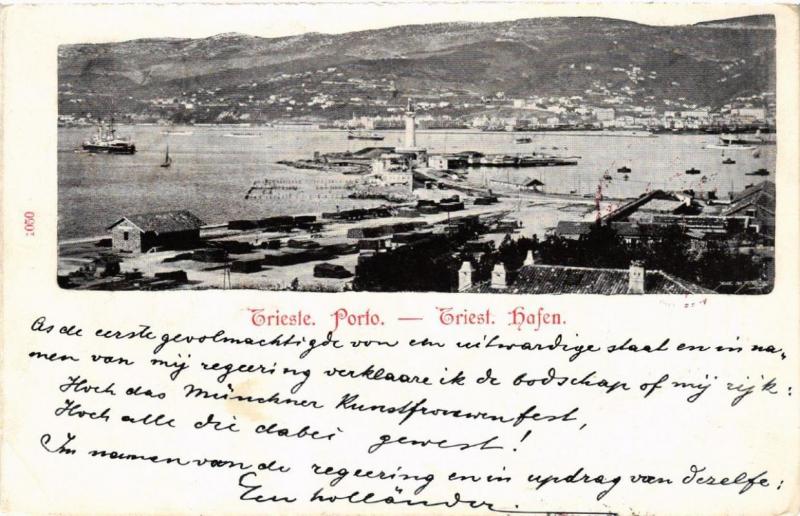 1050
Trieste. Porto. — Triest. Hafen.
As de eerste gevolmachtigde von een uitwardige staat en in na-
men van mij regeering verklaare ik de bodschap of mij rijk:
Hoch das Münchner Kunstfrouwenfest,
Hoch alle die dabei gewest!
In namen van de regeering en in updrag van dezelfe:
Een holländer.